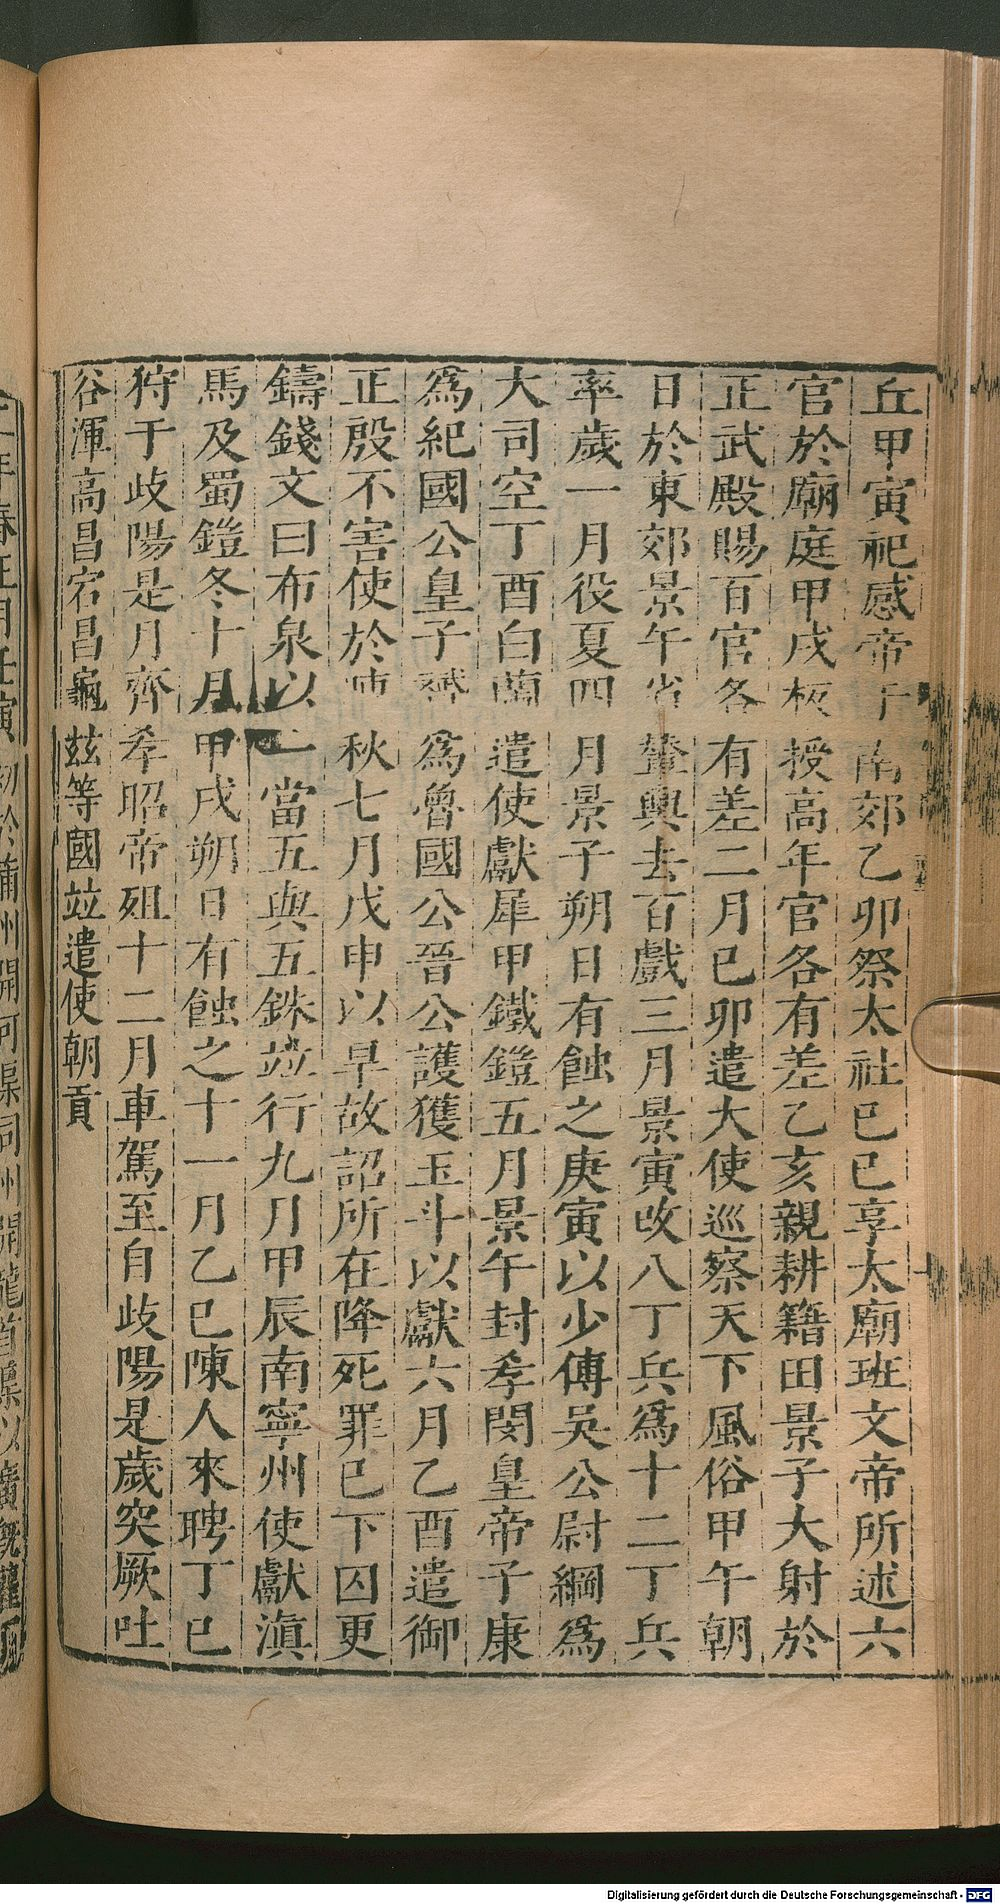 丘甲寅祀感帝于南郊乙卯祭太社己巳享太廟班文帝所述六
官於廟庭甲戌板授高年官各有差乙亥親耕籍田景子大射於
正武殿賜百官各有差二月己卯遣大使巡察天下風俗甲午朝
日於東郊景午省輦輿去百戲三月景寅改八丁兵爲十二丁兵
率歲一月役夏四月景子朔日有蝕之庚寅以少傅吳公尉綱爲
大司空丁酉白蘭遣使獻犀甲鐵鎧五月景午封孝閔皇帝子康
爲紀國公皇子贇爲魯國公晉公護獲玉斗以獻六月乙酉遣御
正殷不害使於陳秋七月戊申以旱故詔所在降死罪已下囚更
鑄錢文曰布泉以一當五與五銖竝行九月甲辰南寧州使獻滇
馬及蜀鎧冬十月甲戌朔日有蝕之十一月乙巳陳人來聘丁巳
狩于歧陽是月齊孝昭帝殂十二月車駕至自歧陽是歲突厥吐
谷渾高昌宕昌龜茲等國竝遣使朝貢
二年春正月壬寅初於蒲州開河渠同州開龍首渠以廣溉灌
Digitalisierung gefördert durch die Deutsche Forschungsgemeinschaft - DFG